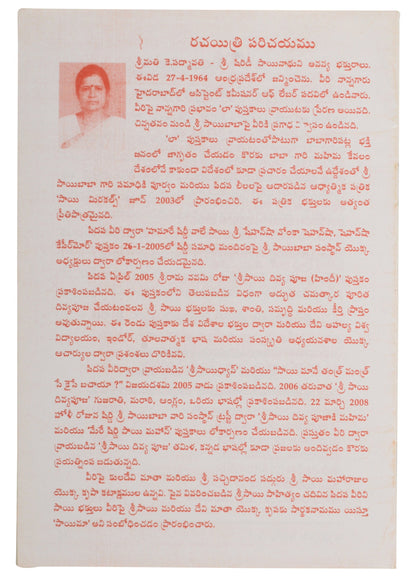 రచయిత్రి పరిచయము
శ్రీమతి కె.పద్మావతి - శ్రీ షిరిడీ సాయినాథుని అనన్య భక్తురాలు.
ఈవిడ 27-4-1964 ఆంధ్రప్రదేశ్‌లో జన్మించెను. వీరి నాన్నగారు
హైదరాబాద్‌లో అసిస్టెంట్ కమీషనర్ ఆఫ్ లేబర్ పదవిలో ఉండినారు.
వీరిపై నాన్నగారి ప్రభావం 'లా' పుస్తకాలు వ్రాయుటకు ప్రేరణ అయినది.
చిన్నతనం నుండి శ్రీ సాయిబాబాపై వీరికి ప్రగాఢ ఉండినది.
'లా' పుస్తకాలు వ్రాయటంతోపాటుగా బాబాగారిపట్ల భక్తి
జనంలో జాగృతం చేయడం కొరకు బాబా గారి మహిమ కేవలం
దేశంలోనే కాకుండా విదేశంలో కూడా ప్రచారం చేయాలనే ఉద్దేశంతో శ్రీ
సాయిబాబా గారి సమాధికి పూర్వం మరియు పిదప లీలలపై ఆధారపడిన ఆధ్యాత్మిక పత్రిక
'సాయి మిరకల్స్' జూన్ 2003లో ప్రారంభించిరి. ఈ పత్రిక భక్తులకు అత్యంత
ప్రీతిపాత్రమైనది.
పిదప వీరి ద్వారా 'హమారే షిర్డీ వాలే సాయి శ్రీ, షేహన్‌షా హోంకా షెహన్‌షా, షెహన్‌షా
పుస్తకం 26-1-2005లో షిర్డీ సమాధి మందిరంపై శ్రీ సాయిబాబా సంస్థాన్ యొక్క
అధ్యక్షులు ద్వారా లోకార్పణం చేయడమైనది.
పిదప ఏప్రిల్ 2005 శ్రీరామ నవమి రోజు 'శ్రీసాయి దివ్య పూజ (హిందీ)' పుస్తకం
ప్రకాశింపబడినది. ఈ పుస్తకంలోని తెలుపబడిన విధంగా అద్భుత చమత్కార పూరిత
దివ్యపూజ చేయటంవలన శ్రీ సాయి భక్తులకు సుఖ, శాంతి, సమృద్ధి మరియు కీర్తి ప్రాప్తం
అవుతున్నాయి. ఈ రెండు పుస్తకాలు దేశ విదేశాల భక్తుల ద్వారా మరియు దేవి అహల్య విశ్వ
విద్యాలయం, ఇండోర్, తులనాత్మక భాష మరియు సంస్కృతి అధ్యయనశాల యొక్క
ఆచార్యుల ద్వారా ప్రశంశలు దొరికినవి.
పిదప వీరిద్వారా వ్రాయబడిన 'శ్రీసాయిధ్యాన్' మరియు "సాయి మానే తంత్ర్ మంత్ర్
సే కైసే బచాయా ?" విజయదశమి 2005 వాడు ప్రకాశింపబడినది. 2006 తరువాత 'శ్రీ సాయి
దివ్యపూజ' గుజరాతి, మరాఠి, ఆంగ్లం, ఒరియ భాషల్లో ప్రకాశింపబడినది. 22 మార్చి 2008
హోళీ రోజున షిర్డి శ్రీ సాయిబాబా వారి సంస్థాన్ ట్రస్టీ ద్వారా 'శ్రీసాయి దివ్య పూజాకీ మహిమ'
మరియు 'మేరే షిర్డి సాయి మహాన్' పుస్తకాలు లోకార్పణం చేయబడినవి. ప్రస్తుతం వీరి ద్వారా
వ్రాయబడిన 'శ్రీసాయి దివ్య పూజ' తమిళ, కన్నడ భాషల్లో కూడా ప్రజలకు అందివ్వడం కొరకు
ప్రయత్నింప బడుతున్నది.
వీరిపై కులదేవి మాతా మరియు శ్రీ సచ్చిదానంద సద్గురు శ్రీ సాయి మహారాజుల
యొక్క కృపా కటాక్షములు ఉన్నవి. పైన వివరించబడిన శ్రీసాయి సాహిత్యం చదివిన పిదప వీరిని
సాయి భక్తులు వీరిపై మరియు దేవి మాతా యొక్క కృపకు సార్థకనామము యిస్తూ
'సాయిమా' అని సంబోధించడం ప్రారంభించారు.